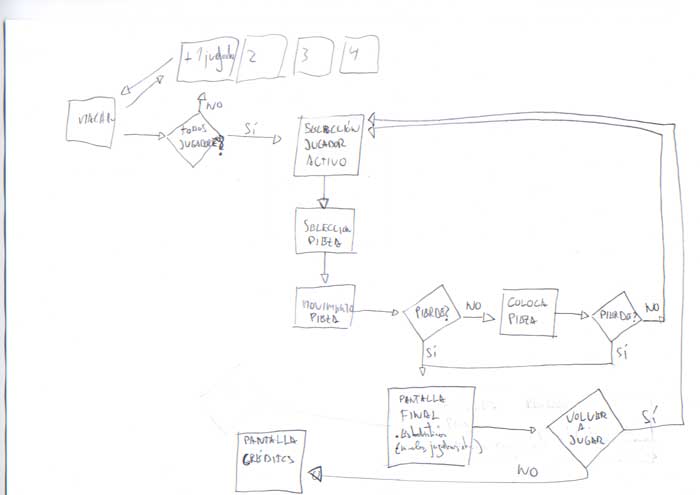 +1 jugador
2
3
4
INICIAR
NO
TODOS
JUGADORES?
SÍ
SELECCIÓN
JUGADOR
ACTIVO
SELECCION
PIEZA
MOVIMIENTO
PIEZA
PIERDE?
NO
COLOCA
PIEZA
PIERDE?
NO
SÍ
SÍ
PANTALLA
FINAL
VOLVER
A
JUGAR
SÍ
NO
PANTALLA
CRÉDITOS